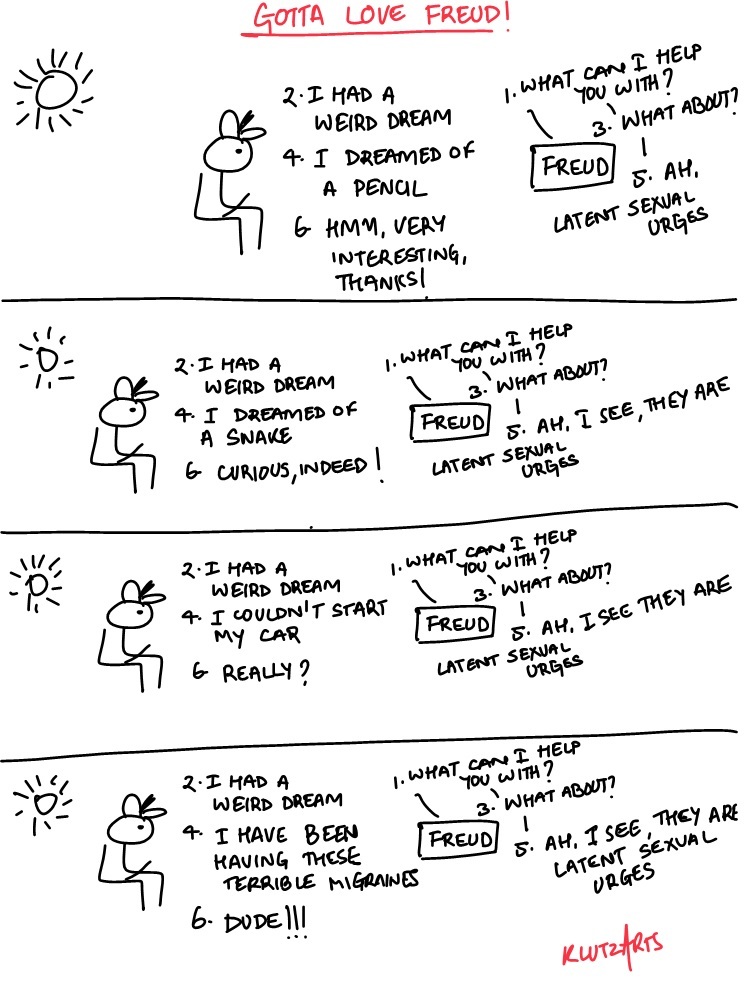 GOTTA LOVE FREUD!
1. WHAT CAN I HELP
YOU WITH?
2. I HAD A
WEIRD DREAM
3. WHAT ABOUT?
4. I DREAMED OF
A PENCIL
FREUD
5. AH,
LATENT SEXUAL
URGES
6 HMM, VERY
INTERESTING,
THANKS!
1. WHAT CAN I HELP
YOU WITH?
2. I HAD A
WEIRD DREAM
3. WHAT ABOUT?
4. I DREAMED OF
A SNAKE
FREUD
5. AH, I SEE, THEY ARE
LATENT SEXUAL
URGES
6 CURIOUS, INDEED!
1. WHAT CAN I HELP
YOU WITH?
2. I HAD A
WEIRD DREAM
3. WHAT ABOUT?
4. I COULDN'T START
MY CAR
FREUD
5. AH, I SEE THEY ARE
LATENT SEXUAL
URGES
6 REALLY?
1. WHAT CAN I HELP
YOU WITH?
2. I HAD A
WEIRD DREAM
3. WHAT ABOUT?
4. I HAVE BEEN
HAVING THESE
TERRIBLE MIGRAINES
FREUD
5. AH, I SEE, THEY ARE
LATENT SEXUAL
URGES
6. DUDE!!!
KLUTZARTS